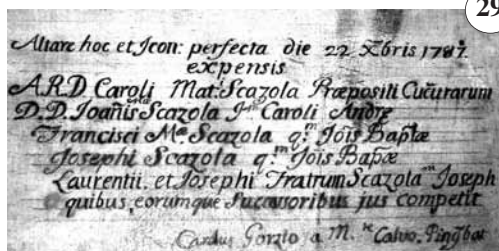 29
Altare hoc et Icon: perfecta die 22 Xbris 1787.
expensis
A.R.D. Caroli Mat: Scazola Præpositi Cucurarum
D.D. Joañis Scazola Caroli Andre
Francisci Mᵃ Scazola q.ᵐ Jois Baptæ
Josephi Scazola q.ᵐ Jois Bapæ
Laurentii, et Josephi Fratrum Scazola Joseph
quibus, eorumque Successoribus jus competit
Gorzio a M. Calvo, Pingbat